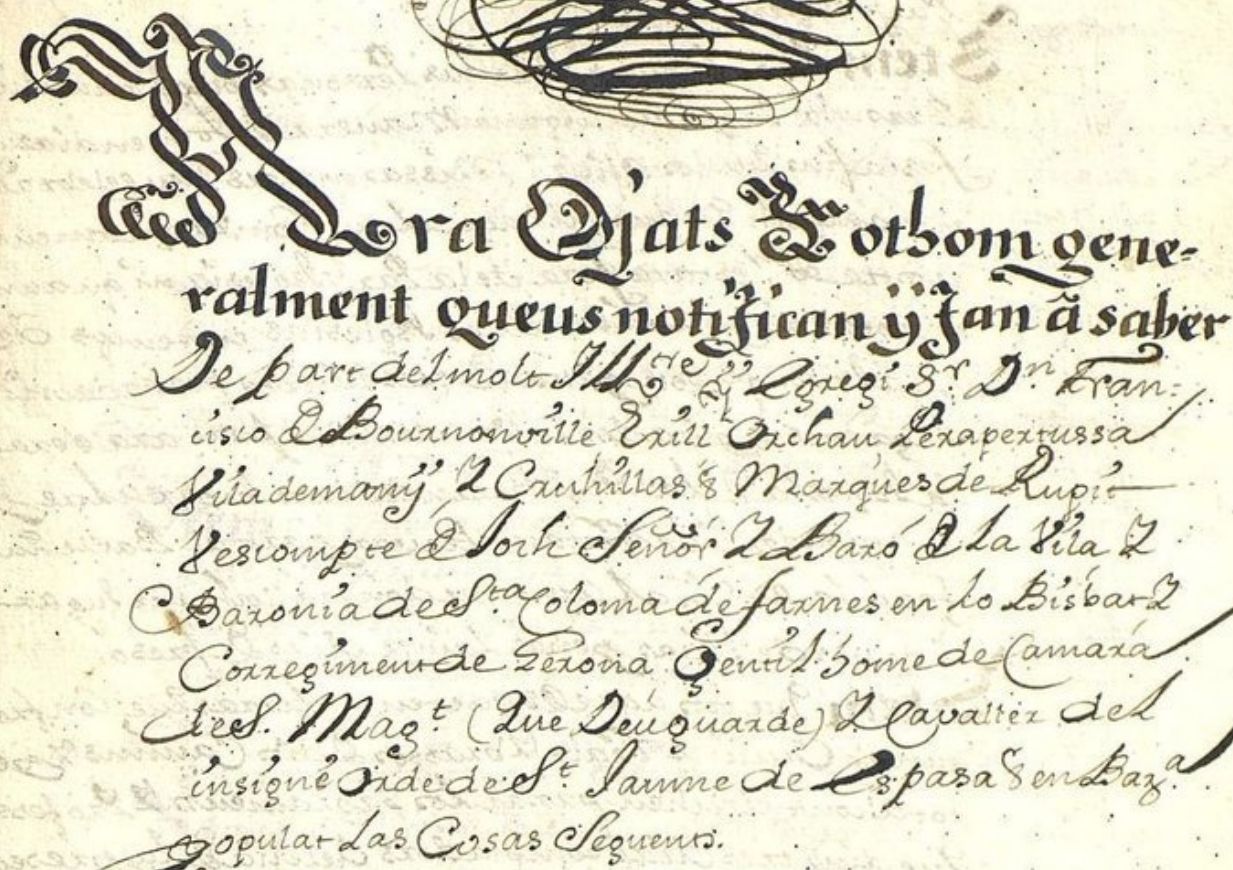 Ara Ojats Tothom gene-
ralment queus notifican ÿ fan â saber
De part del molt Illtre y Egregi Sr. Dn. Fran=
cisco de Bournonville Erill Orchau Perapertussa
Vilademanÿ & Cruhillas & Marques de Rupit
Vescompte de Joch Señor & Baró de La Vila &
Baronia de Sta. Coloma de farnes en lo Bisbat &
Corregiment de Gerona Gentil home de Camara
de S. Magt. (Que Deu guarde) & Cavaller del
insigne Orde de St. Jaume de Espasa & en
popular Las Cosas Seguents.